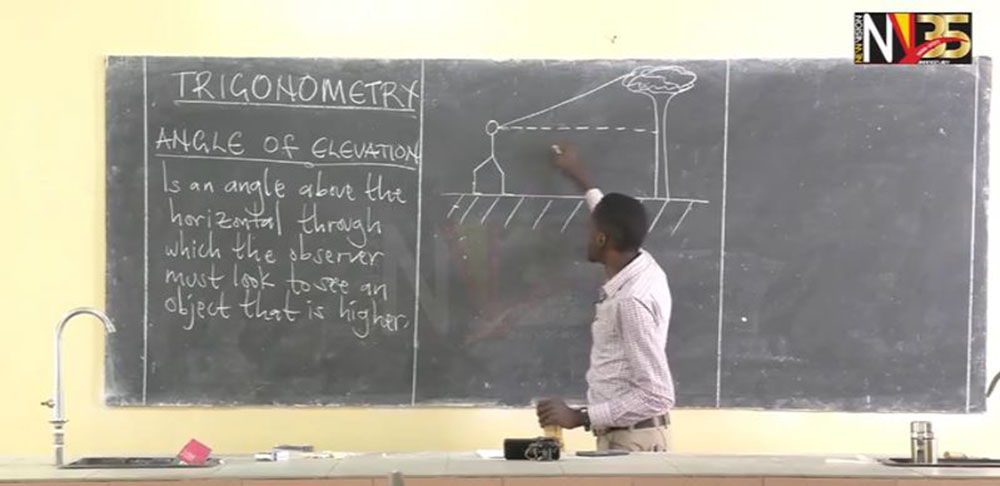 TRIGONOMETRY
ANGLE OF ELEVATION
Is an angle above the
horizontal through
which the observer
must look to see an
object that is higher.
NEW VISION
NV35